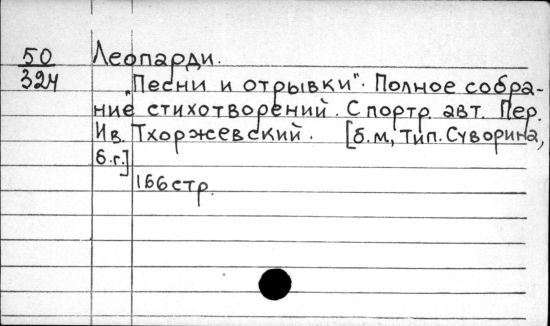 50 Леопарди.
324 „Песни и отрывки". Полное собра-
ние стихотворений. С портр. авт. Пер.
Ив. Тхоржевский. [б.м, тип. Суворина,
б.г.]
166 стр.